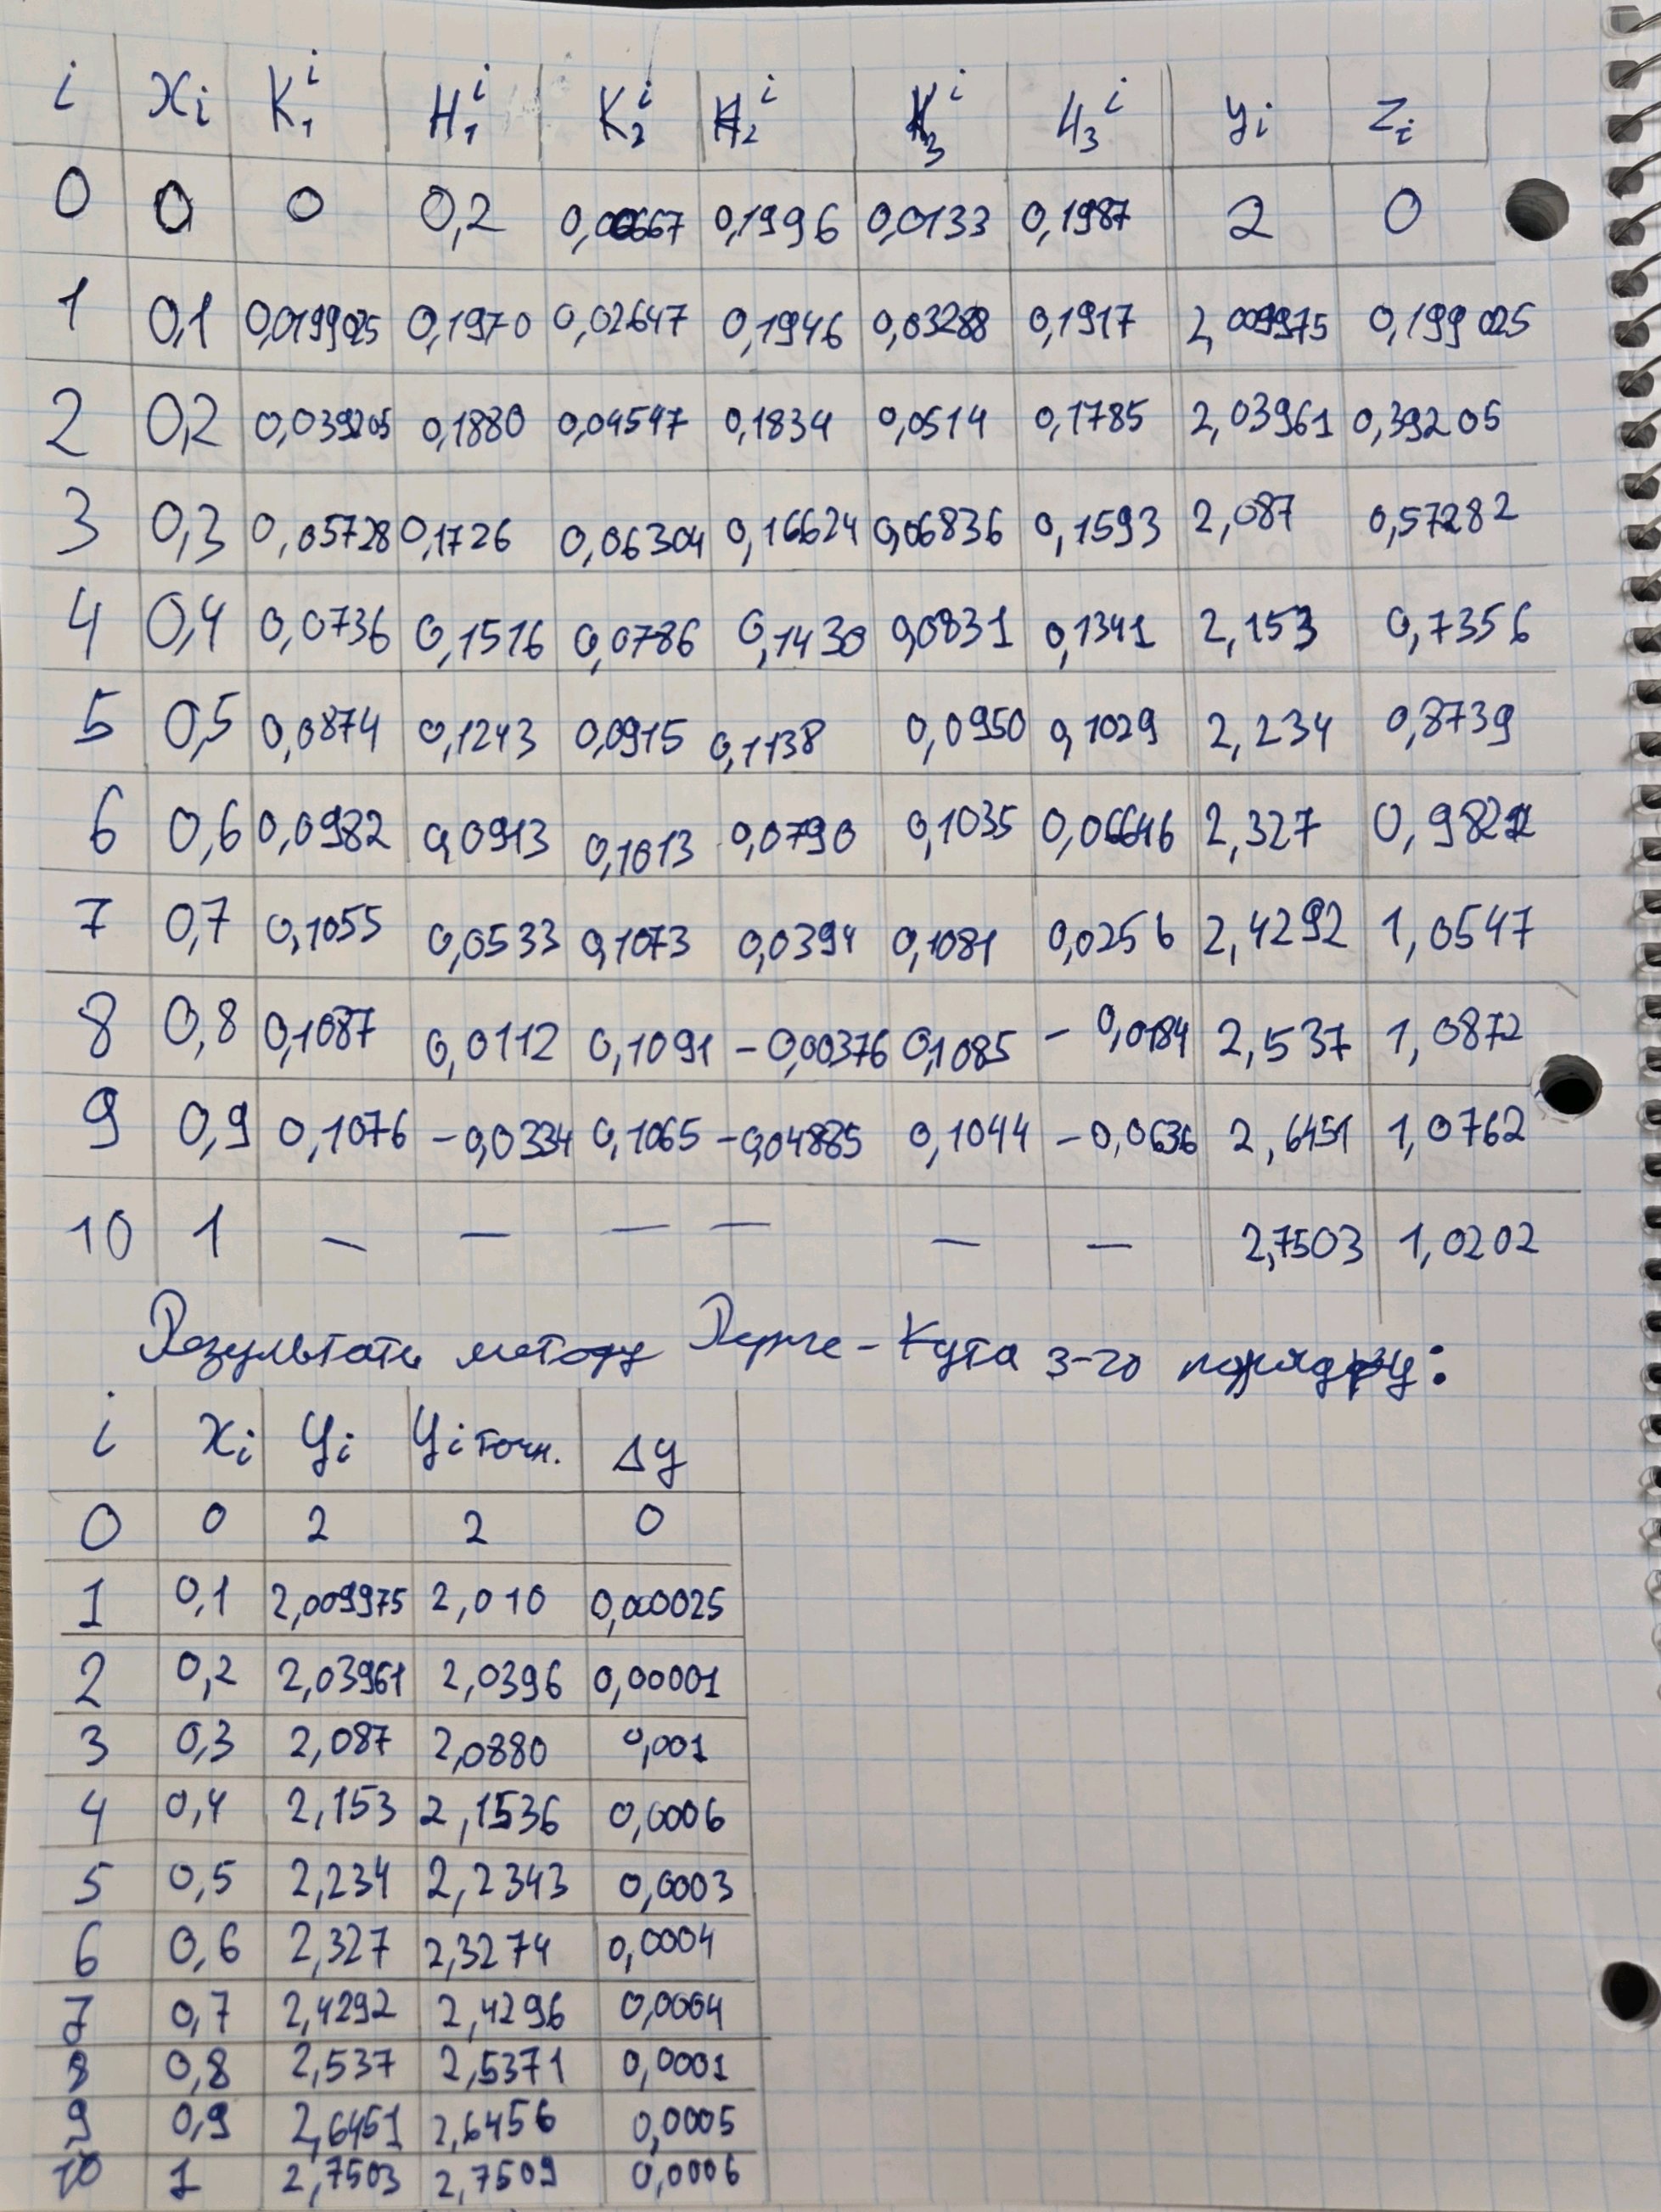 i xᵢ K₁ⁱ H₁ⁱ K₂ⁱ H₂ⁱ K₃ⁱ H₃ⁱ yᵢ zᵢ
0 0 0 0,2 0,00667 0,1996 0,0133 0,1987 2 0
1 0,1 0,0199025 0,1970 0,02647 0,1946 0,03288 0,1917 2,009975 0,199025
2 0,2 0,039205 0,1880 0,04547 0,1834 0,0514 0,1785 2,03961 0,39205
3 0,3 0,05728 0,1726 0,06304 0,16624 0,06836 0,1593 2,087 0,57282
4 0,4 0,0736 0,1516 0,0786 0,1430 0,0831 0,1341 2,153 0,7356
5 0,5 0,0874 0,1243 0,0915 0,1138 0,0950 0,1029 2,234 0,8739
6 0,6 0,0982 0,0913 0,1013 0,0790 0,1035 0,06646 2,327
7 0,7 0,1055 0,0533 0,1073 0,0394 0,1081 0,0256 2,4292 1,0547
8 0,8 0,1087 0,0112 0,1091 -0,00376 0,1085 -0,0184 2,537 1,0872
9 0,9 0,1076 -0,0334 0,1065 -0,04885 0,1044 -0,0636 2,6451 1,0762
10 1 — — — — — — 2,7503 1,0202
Результати методу Рунге-Кута 3-го порядку:
i xᵢ yᵢ yᵢ точн. Δy
0 0 2 2 0
1 0,1 2,009975 2,010 0,000025
2 0,2 2,03961 2,0396 0,00001
3 0,3 2,087 2,0880 0,001
4 0,4 2,153 2,1536 0,0006
5 0,5 2,234 2,2343 0,0003
6 0,6 2,327 2,3274 0,0004
7 0,7 2,4292 2,4296 0,0004
8 0,8 2,537 2,5371 0,0001
9 0,9 2,6451 2,6456 0,0005
10 1 2,7503 2,7509 0,0006